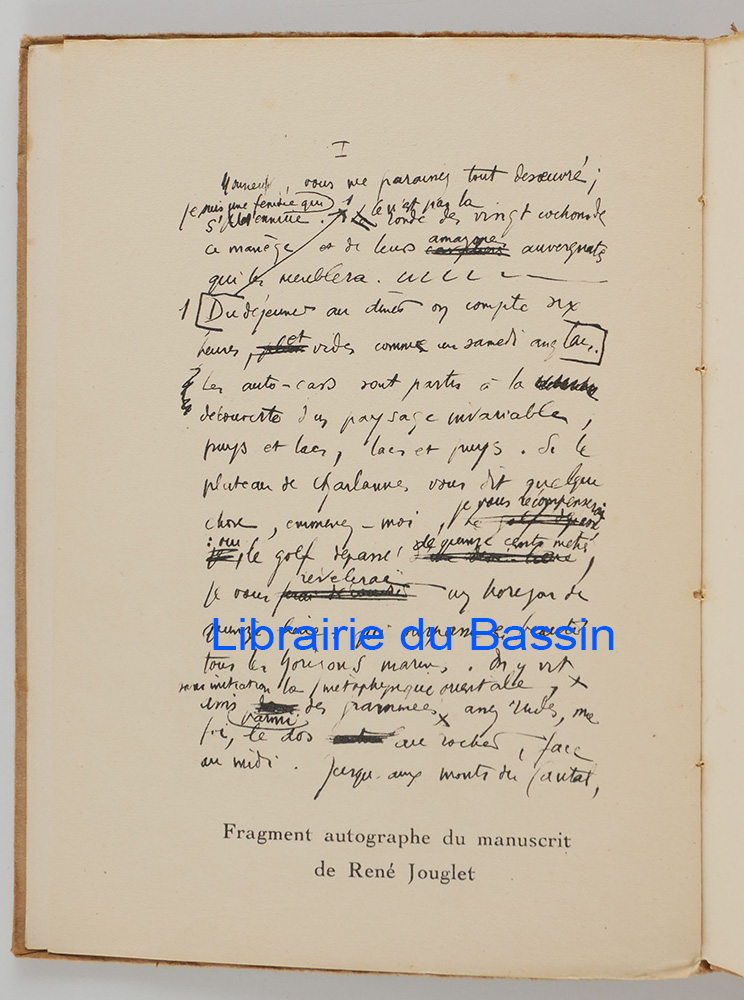 I
Monsieur, vous me paraissez tout désœuvré ;
je suis une femme qui
s'ennuie. 1 Ce n'est pas la
ronde des vingt cochons de
ce manège et de leurs amazones auvergnats
qui les meublera.
1 Du déjeuner au dîner on compte six
heures, et vides comme un samedi anglais.
Les auto-cars sont partis à la
découverte d'un paysage invariable,
puys et lacs, lacs et puys. Si le
plateau de Charlannes vous dit quelque
je vous récompenserai
chose, emmenez-moi,
: oui, le golf dépassé ! de quinze cents mètres,
révélerai
je vous un horizon de
quinze
tous les horizons marins. On y vit
sans initiation la métaphysique orientale,
assis des graminées, assez rudes, ma
parmi
foi, le dos au rocher, face
au midi. Jusqu'aux monts du Cantal,
Fragment autographe du manuscrit
de René Jouglet
Librairie du Bassin